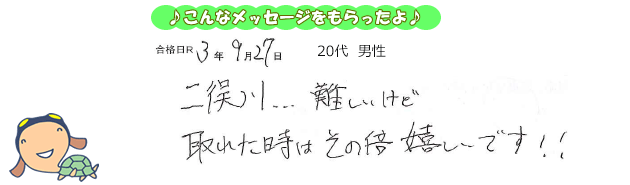 ♪こんなメッセージをもらったよ♪
合格日R 3年 9月27日 20代 男性
二俣川... 難しいけど
取れた時はその倍 嬉しーです!!